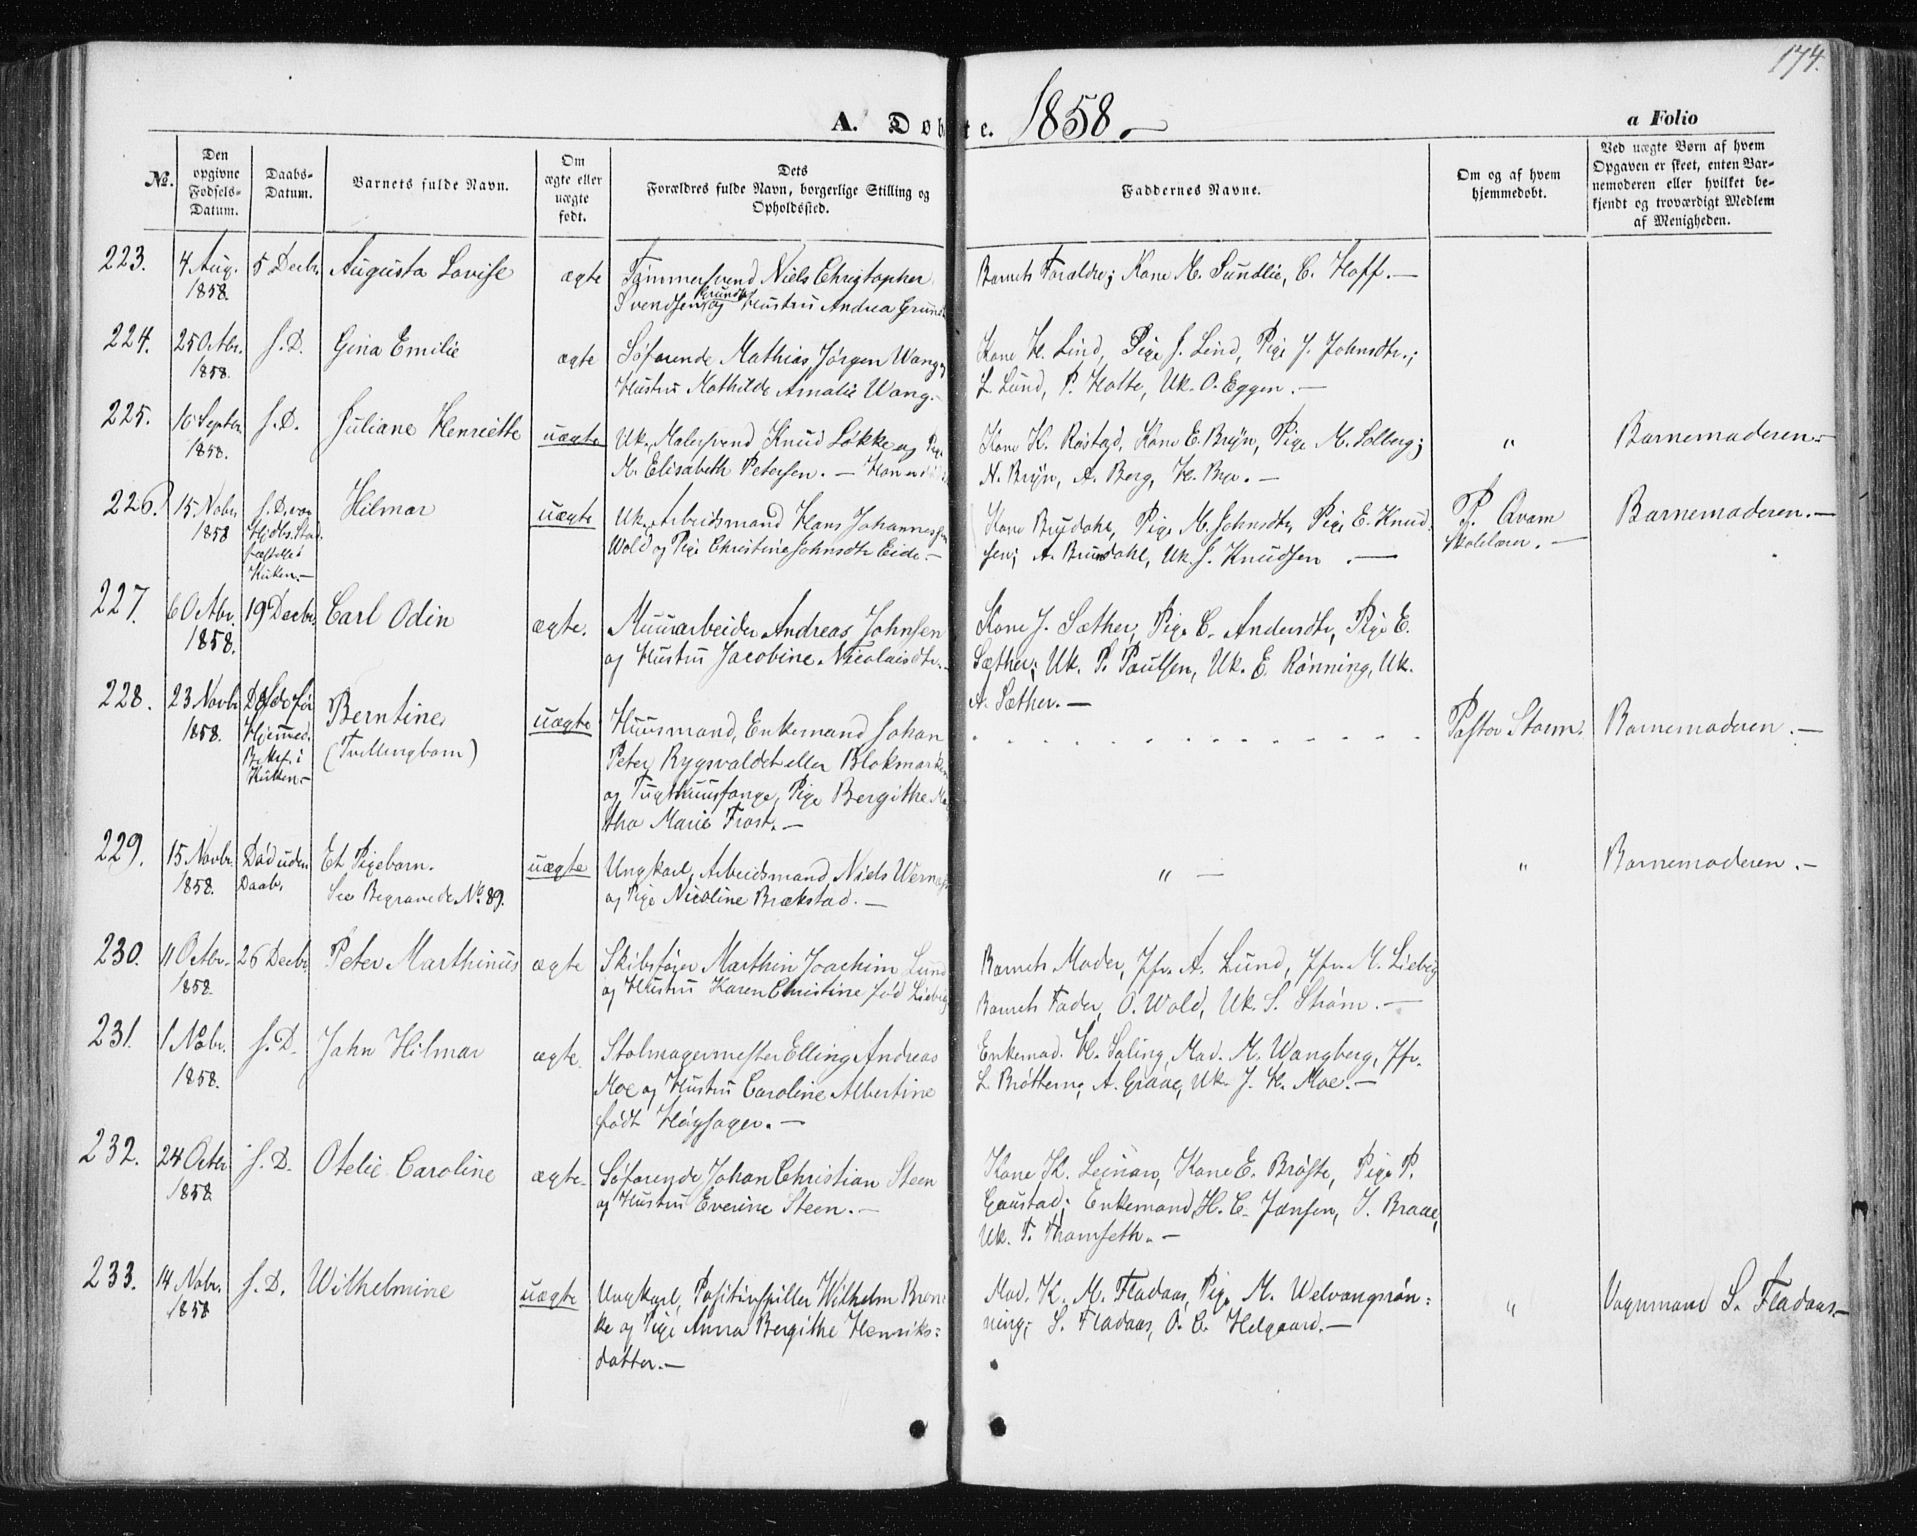 174.
A. Døbte. 1858.
a Folio
No.
Den opgivne Fødsels-Datum.
Daabs-Datum.
Barnets fulde Navn.
Om ægte eller uægte født.
Dets Forældres fulde Navn, borgerlige Stilling og Opholdssted.
Faddernes Navne.
Om og af hvem hjemmedøbt.
Ved uægte Børn af hvem Opgaven er skeet, enten Barnemoderen eller hvilket bekjendt og troværdigt Medlem af Menigheden.
223. 4 Aug. 1858. 5 Decbr. Augusta Lovise ægte
Tømmersvend Niels Christopher
Svendsen Grundt og Hustru Andrea Grundt
Barnets Forældre; Kone M. Sundlie, C. Hoff. —
224. 25 Octbr. 1858. s. D. Gina Emilie ægte
Søfarende Mathias Jørgen Wang og
Hustru Mathilde Amalie Wang. —
Kone H. Lind, Pige J. Lind, Pige J. Johnsdtr.;
L. Lund, P. Holte, Uk. O. Eggen. —
225. 10 Septbr. 1858. s. D. Juliane Henriette uægte
Uk. Malersvend Knud Løkke og Pige
M. Elisabeth Petersen. —
Kone H. Røstad, Kone E. Bryn, Pige M. Solberg;
N. Bryn, A. Berg, H. Bye. —
" Barnemoderen. —
226. 15 Novbr. 1858 s. D. var
Hjdbs. Stad-
fæstelse i
Kirken. —
Hilmar uægte
Uk. Arbeidsmand Hans Johannessen
Wold og Pige Christine Johnsdtr Eide. —
Kone Brudahl, Pige M. Johnsdtr, Pige E. Knud-
sen; A. Brudahl, Uk. J. Knudsen. —
P. Qvam
Skolelærer. —
Barnemoderen. —
227. 6 Octbr. 1858. 19 Decbr. Carl Odin ægte.
Muurarbeider Andreas Johnsen
og Hustru Jacobine Nicolaisdtr. —
Kone J. Sæther, Pige C. Andersdtr, Pige E.
Sæther; Uk. P. Paulsen, Uk. E. Rønning, Uk.
A. Sæther. —
228. 23 Novbr. 1858. Døde før
Hjemmed.
Bekf. i
Kirken. —
Berntine
(Tvillingbarn)
uægte
Huusmand, Enkemand Johan
Peter Rygvoldet eller Blokmarken
og Tugthuusfange, Pige Bergithe Mar-
tha Marie Frost. —
Pastor Storm.
Barnemoderen. —
229. 15 Novbr. 1858. Død uden
Daab.
Et Pigebarn.
See Begravede No. 89.
uægte
Ungkarl, Arbeidsmand Niels Wernes
og Pige Nicoline Brækstad. —
" — " Barnemoderen. —
230. 11 Octbr. 1858. 26 Decbr. Peter Marthinus ægte
Skibsfører Marthin Joachim Lund
og Hustru Karen Christine fød Liebig
Barnets Moder, Jfr. A. Lund, Jfr. M. Liebig
Barnets Fader, O. Wold, Uk. S. Strøm. —
231. 1 Novbr. 1858. s. D. John Hilmar ægte
Stolmagermester Elling Andreas
Moe og Hustru Caroline Albertine
født Høysager. —
Enkemad. H. Saling, Mad. M. Wangberg, Jfr.
L. Brøttem; A. Graae, Uk. J. H. Moe. —
232. 24 Octbr. 1858 s. D. Otelie Caroline ægte
Søfarende Johan Christian Steen
og Hustru Everine Steen. —
Kone K. Leinan, Kone E. Brøste, Pige P.
Gaustad; Enkemand H. C. Jansen, J. Braae,
Uk. T. Thomseth. —
233. 14 Novbr. 1858 s. D. Wilhelmine uægte
Ungkarl, Positivspiller Wilhelm Brun-
ke og Pige Anna Bergithe Henriks-
datter. —
Mad. K. M. Fladaas, Pige M. Welvangsrøn-
ning; S. Fladaas, O. C. Helgaard. —
" Vognmand S. Fladaas —